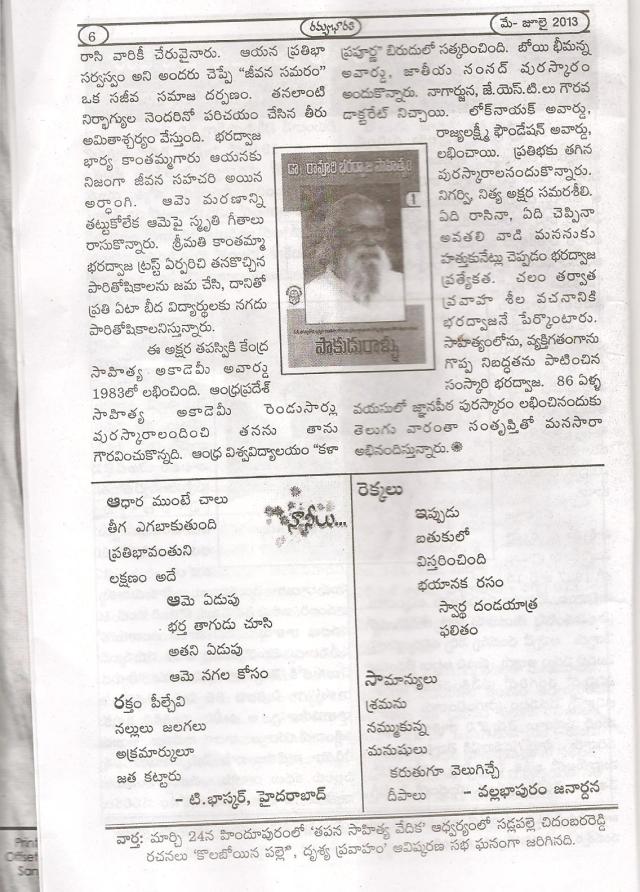 6
రమ్యభారతి
మే- జూలై 2013
రాసి వారికీ చేరువైనారు. ఆయన ప్రతిభా
సర్వస్వం అని అందరు చెప్పే "జీవన సమరం"
ఒక సజీవ సమాజ దర్పణం. తనలాంటి
నిర్భాగ్యుల నెందరినో పరిచయం చేసిన తీరు
అమితాశ్చర్యం వేస్తుంది. భరద్వాజ
భార్య కాంతమ్మగారు ఆయనకు
నిజంగా జీవన సహచరి అయిన
అర్ధాంగి. ఆమె మరణాన్ని
తట్టుకోలేక ఆమెపై స్మృతి గీతాలు
రాసుకొన్నారు. శ్రీమతి కాంతమ్మా
భరద్వాజ ట్రస్ట్ ఏర్పరిచి తనకొచ్చిన
పారితోషికాలను జమ చేసి, దానితో
ప్రతి ఏటా బీద విద్యార్థులకు నగదు
పారితోషికాలనిస్తున్నారు.
ఈ అక్షర తపస్వికి కేంద్ర
సాహిత్య అకాడెమీ అవార్డు
1983లో లభించింది. ఆంధ్రప్రదేశ్
సాహిత్య అకాడెమీ రెండుసార్లు
పురస్కారాలందించి తనను తాను
గౌరవించుకొన్నది. ఆంధ్ర విశ్వవిద్యాలయం "కళా
ప్రపూర్ణ" బిరుదులో సత్కరించింది. బోయి భీమన్న
అవార్డు, జాతీయ సంసద్ పురస్కారం
అందుకొన్నారు. నాగార్జున, జే.యెస్.టి.లు గౌరవ
డాక్టరేట్ నిచ్చాయి. లోక్‌నాయక్ అవార్డు,
రాజ్యలక్ష్మీ ఫౌండేషన్ అవార్డు,
లభించాయి. ప్రతిభకు తగిన
పురస్కారాలనందుకొన్నారు.
నిగర్వి, నిత్య అక్షర సమరశీలి.
ఏది రాసినా, ఏది చెప్పినా
అవతలి వాడి మనసుకు
హత్తుకునేట్లు చెప్పడం భరద్వాజ
ప్రత్యేకత. చలం తర్వాత
ప్రవాహ శీల వచనానికి
భరద్వాజనే పేర్కొంటారు.
సాహిత్యంలోను, వ్యక్తిగతంగాను
గొప్ప నిబద్ధతను పాటించిన
సంస్కారి భరద్వాజ. 86 ఏళ్ళ
వయసులో జ్ఞానపీఠ పురస్కారం లభించినందుకు
తెలుగు వారంతా సంతృప్తితో మనసారా
అభినందిస్తున్నారు.
డా॥ రావూరి భరద్వాజ సాహిత్యం
1
పాకుడురాళ్ళు
నానీలు...
ఆధార ముంటే చాలు
తీగ ఎగబాకుతుంది
ప్రతిభావంతుని
లక్షణం అదే
ఆమె ఏడుపు
భర్త తాగుడు చూసి
అతని ఏడుపు
ఆమె నగల కోసం
రక్తం పీల్చేవి
నల్లులు జలగలు
అక్రమార్కులూ
జత కట్టారు
- టి.భాస్కర్, హైదరాబాద్
రెక్కలు
ఇప్పుడు
బతుకులో
విస్తరించింది
భయానక రసం
స్వార్థ దండయాత్ర
ఫలితం
సామాన్యులు
శ్రమను
నమ్ముకున్న
మనుషులు
కరుతుగూ వెలుగిచ్చే
దీపాలు - వల్లభాపురం జనార్దన
వార్త: మార్చి 24న హిందూపురంలో 'తపన సాహిత్య వేదిక' ఆధ్వర్యంలో సడ్లపల్లె చిదంబరరెడ్డి
రచనలు 'కొలబోయిన పల్లె', దృశ్య ప్రవాహం' ఆవిష్కరణ సభ ఘనంగా జరిగినది.
Print
Offset
San